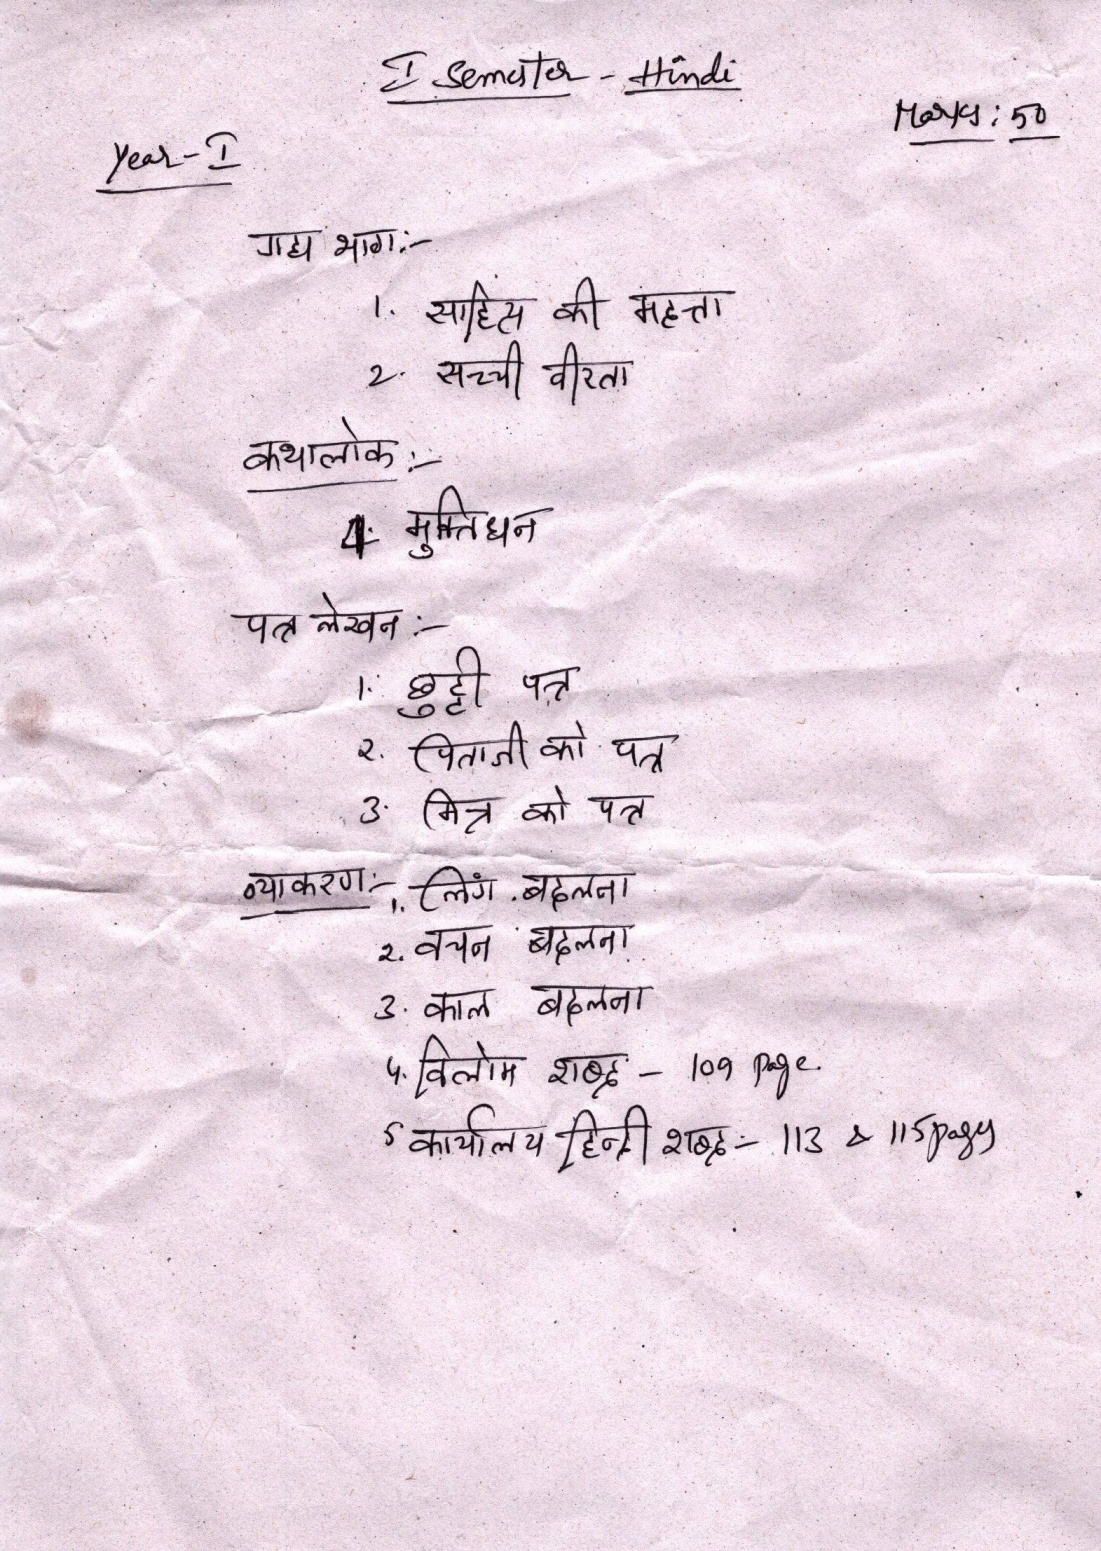 I Semester - Hindi
Marks: 50
Year - I
गद्य भाग:-
1. साहित्य की महत्ता
2. सच्ची वीरता
कथालोक :-
4. मुक्तिधन
पत्र लेखन :-
1. छुट्टी पत्र
2. पिताजी को पत्र
3. मित्र को पत्र
व्याकरण:- 1. लिंग बदलना
2. वचन बदलना
3. काल बदलना
4. विलोम शब्द - 109 page.
5 कार्यालय हिन्दी शब्द:- 113 & 115 pages